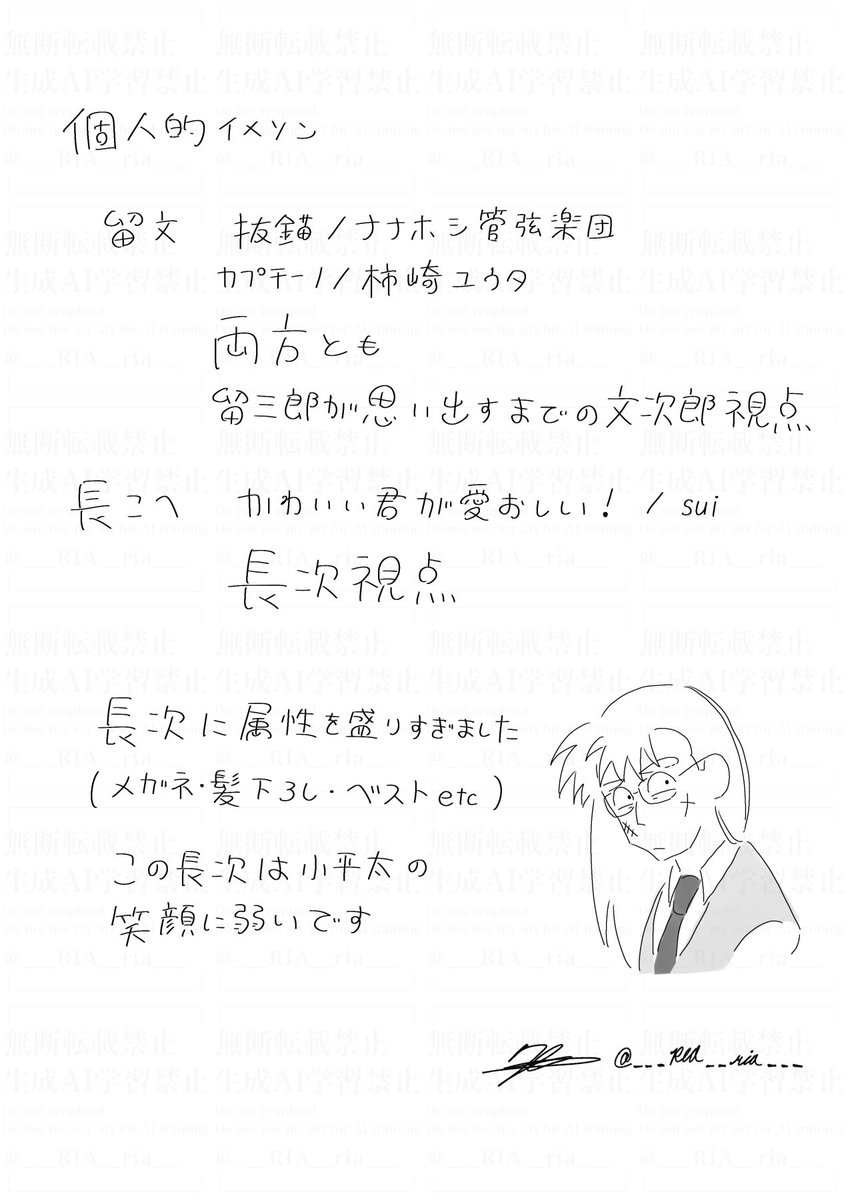 個人的イメソン
留文 抜錨/ナナホシ管弦楽団
カプチーノ/柿崎ユウタ
両方とも
留三郎が思い出すまでの文次郎視点
長こへ かわいい君が愛おしい! / sui
長次視点
長次に属性を盛りすぎました
(メガネ・髪下ろし・ベストetc)
この長次は小平太の
笑顔に弱いです
@___RIA__ria___
無断転載禁止
生成AI学習禁止
Do not reupload
Do not use my art for AI training
@___RIA__ria___